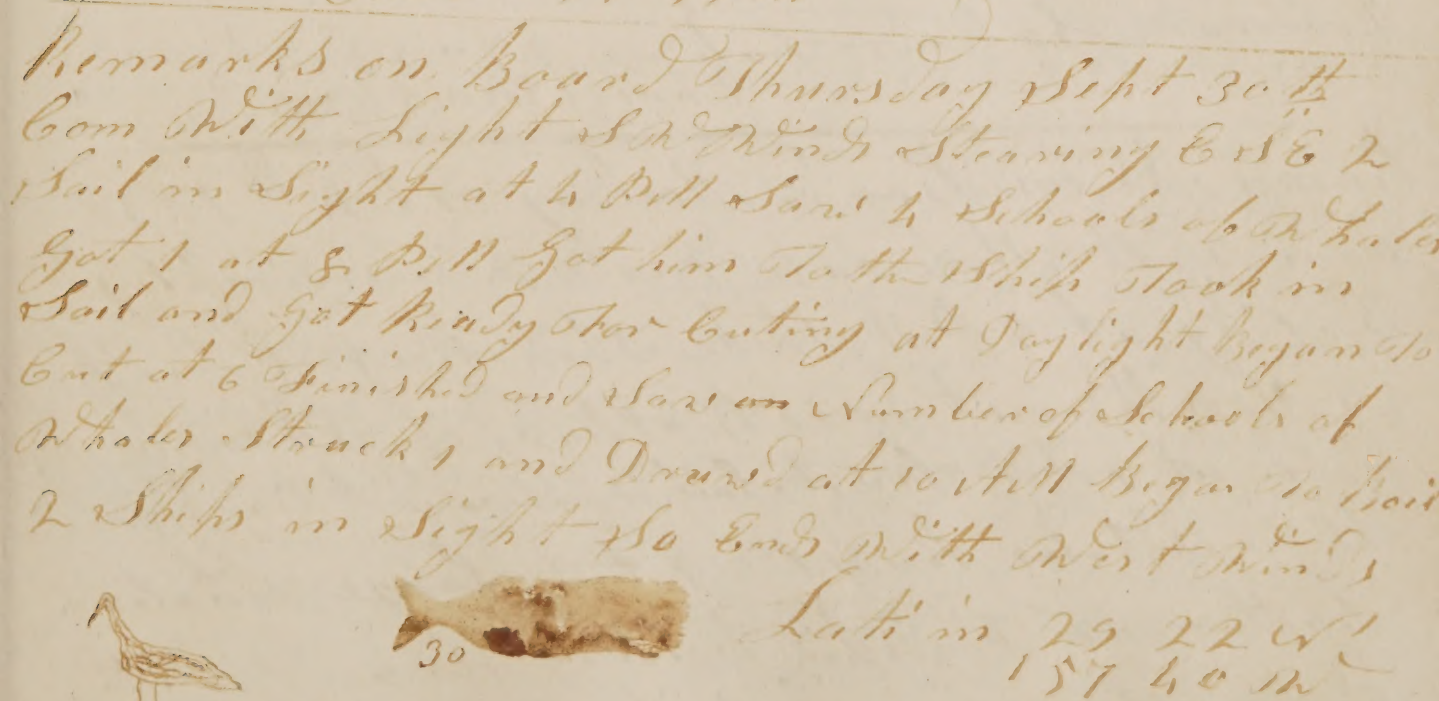 Remarks on Board Thursday Sept 30th
Com With Light SW Winds Stearing E S E 2
Sail in Sight at 4 PM Saw 4 Schools of Whales
Got 1 at 8 PM Got him To the Ship Took in
Sail and Got Ready For Cuting at Daylight Began To
Cut at 6 Finished and Saw an Number of Schools of
Whales Struck 1 and Drawd at 10 AM Began To Boil
2 Ships in Sight So Ends With West Winds
30 Lati in 29 22 N
157 40 W